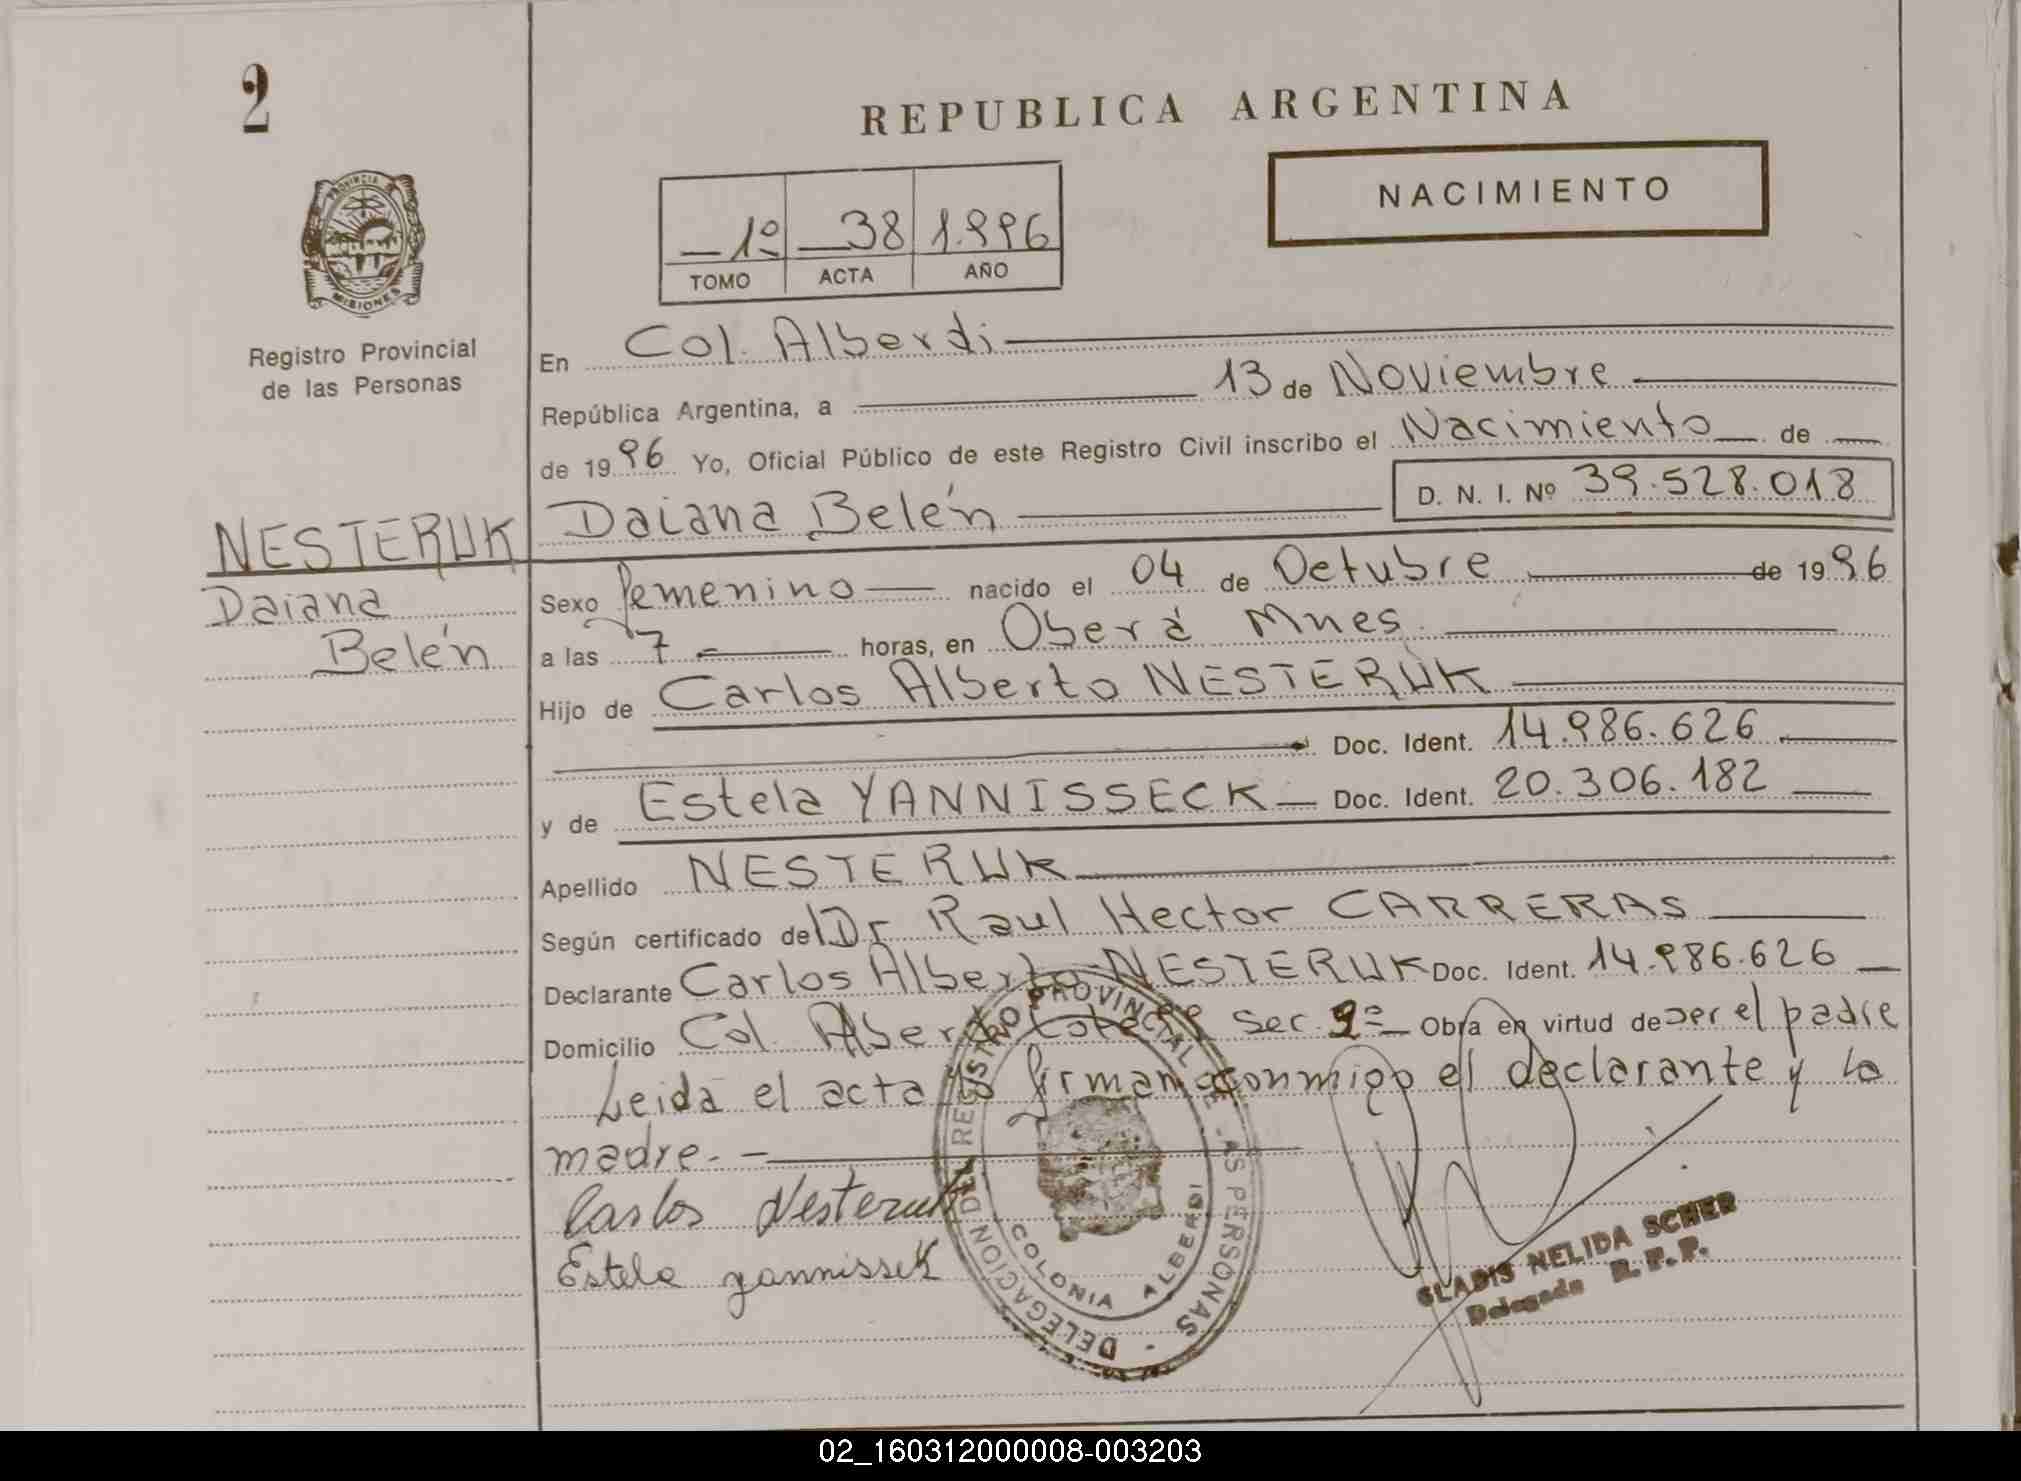 2
REPUBLICA ARGENTINA
NACIMIENTO
PROVINCIA DE
MISIONES
Registro Provincial
de las Personas
1º 38 1.996
TOMO ACTA AÑO
En Col. Alberdi
República Argentina, a 13 de Noviembre
de 1996 Yo, Oficial Público de este Registro Civil inscribo el Nacimiento de
D. N. I. Nº 39.528.018
NESTERUK Daiana Belén
Daiana
Belén
Sexo femenino nacido el 04 de Octubre de 1996
a las 7 horas, en Oberá Mnes.
Hijo de Carlos Alberto NESTERUK
Doc. Ident. 14.986.626
y de Estela YANNISSECK Doc. Ident. 20.306.182
Apellido NESTERUK
Según certificado del Dr Raul Hector CARRERAS
Declarante Carlos Alberto NESTERUK Doc. Ident. 14.986.626
Domicilio Col. Alberdi Sec. Obra en virtud de ser el padre
Leida el acta firman conmigo el declarante y la
madre. -
Carlos Nesteruk
Estela yannissek
DELEGACION DEL REGISTRO PROVINCIAL DE LAS PERSONAS
COLONIA ALBERDI
GLADIS NELIDA SCHER
Delegada R. P. P.
02_160312000008-003203